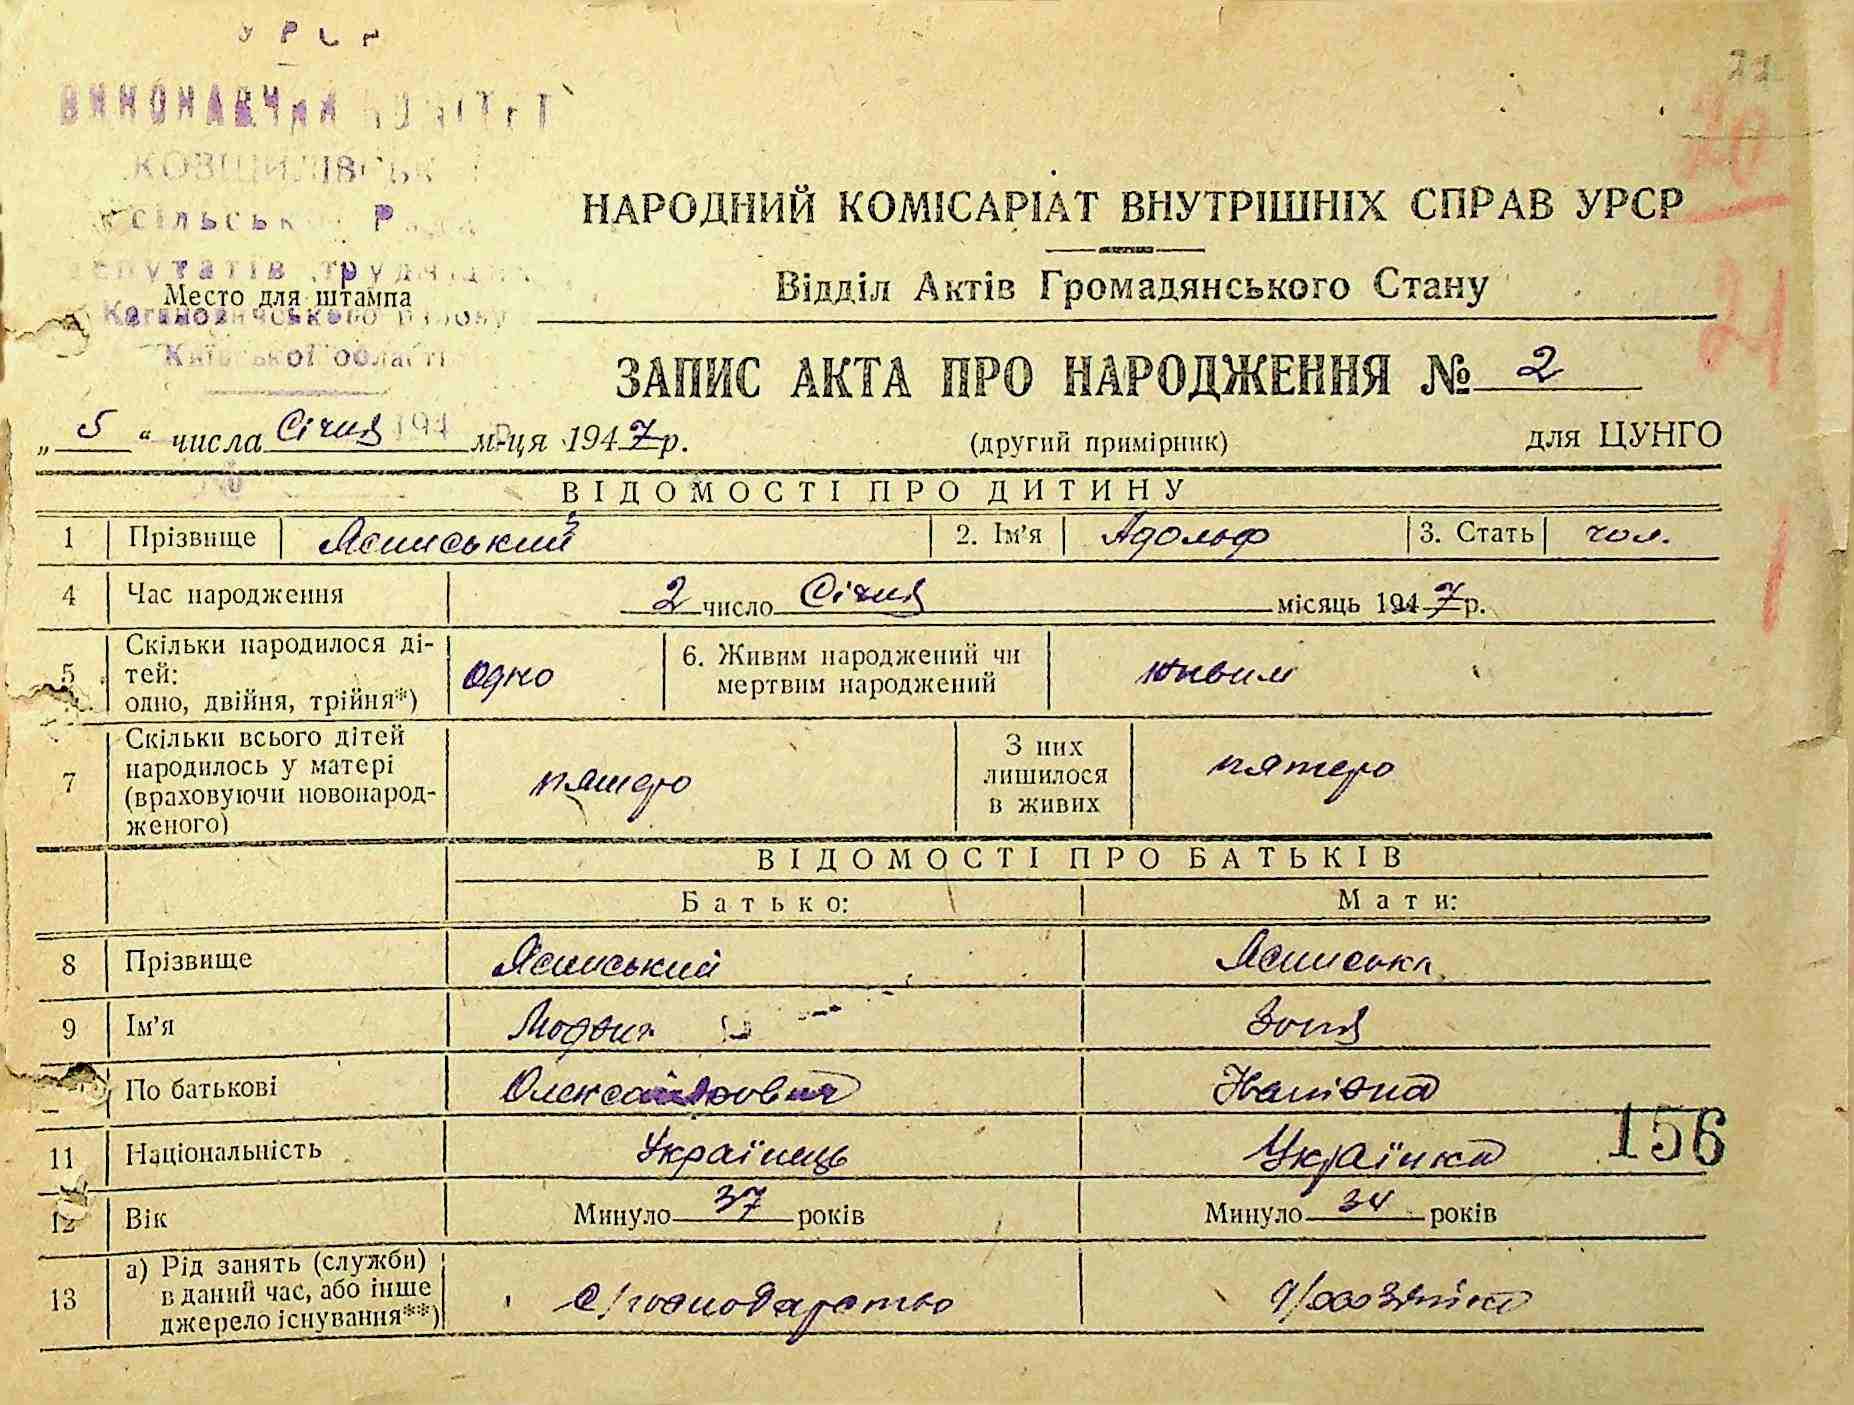 УРСР
ВИКОНАВЧИЙ КОМІТЕТ
КОВШИЛІВСЬК
сільськ Рад
депутатів трудящих
Место для штампа
Кагановичського району
Київської області
22
20
21
НАРОДНИЙ КОМІСАРІАТ ВНУТРІШНІХ СПРАВ УРСР
Відділ Актів Громадянського Стану
ЗАПИС АКТА ПРО НАРОДЖЕННЯ № 2
„5“ числа Січня м-ця 1947р. (другий примірник) для ЦУНГО
ВІДОМОСТІ ПРО ДИТИНУ
1 Прізвище Ясинський 2. Ім'я Адольф 3. Стать чол.
4 Час народження 2 число Січня місяць 1947р.
5 Скільки народилося ді-
тей:
одно, двійня, трійня*) одно 6. Живим народжений чи
мертвим народжений живим
7 Скільки всього дітей
народилось у матері
(враховуючи новонарод-
женого) пятеро З них
лишилося
в живих пятеро
ВІДОМОСТІ ПРО БАТЬКІВ
Батько: Мати:
8 Прізвище Ясинський Ясинська
9 Ім'я Зоня
По батькові Олександрович Іванівна
11 Національність Українець Українка 156
12 Вік Минуло 37 років Минуло 34 років
13 а) Рід занять (служби)
в даний час, або інше
джерело існування**) с/господарство д/хозяйка